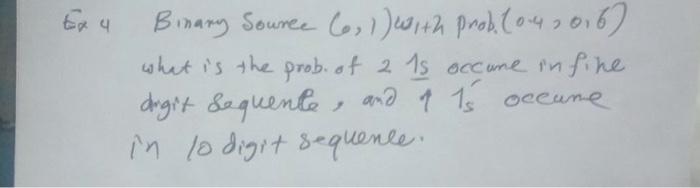 Ex 4 Binary Source (0,1) with prob. (0.4, 0.6)
what is the prob. of 2 1s occure in five
digit sequence, and 1s occure
in 10 digit sequence.